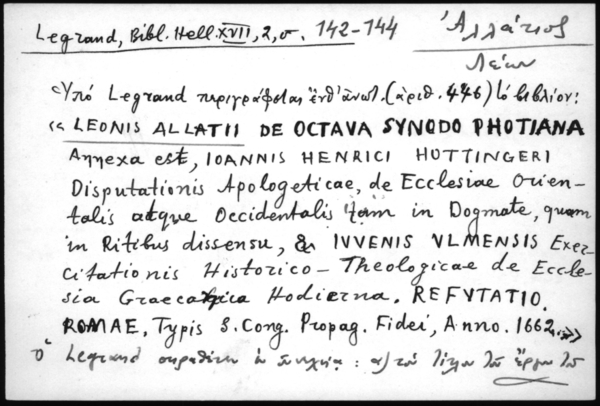 Legrand, Bibl. Hell. XVII, 2, σ. 142-144
Ἀλλάτιος
Λέων
Ὑπὸ Legrand περιγράφεται ἐνθ' ἀνωτ. (ἀριθ. 446) τὸ βιβλίον:
« LEONIS ALLATII DE OCTAVA SYNODO PHOTIANA
Annexa est, IOANNIS HENRICI HOTTINGERI
Disputationis Apologeticae, de Ecclesiae Orien-
talis atque Occidentalis tam in Dogmate, quam
in Ritibus dissensu, & IVVENIS VLMENSIS Exer-
citationis Historico-Theologicae de Eccle-
sia Graecanica Hodierna. REFVTATIO.
ROMAE, Typis S. Cong. Propag. Fidei, Anno. 1662...»
Ὁ Legrand παραθέτει ἐν συνεχείᾳ: α) τὸν τίτλον τοῦ ἔργου τοῦ